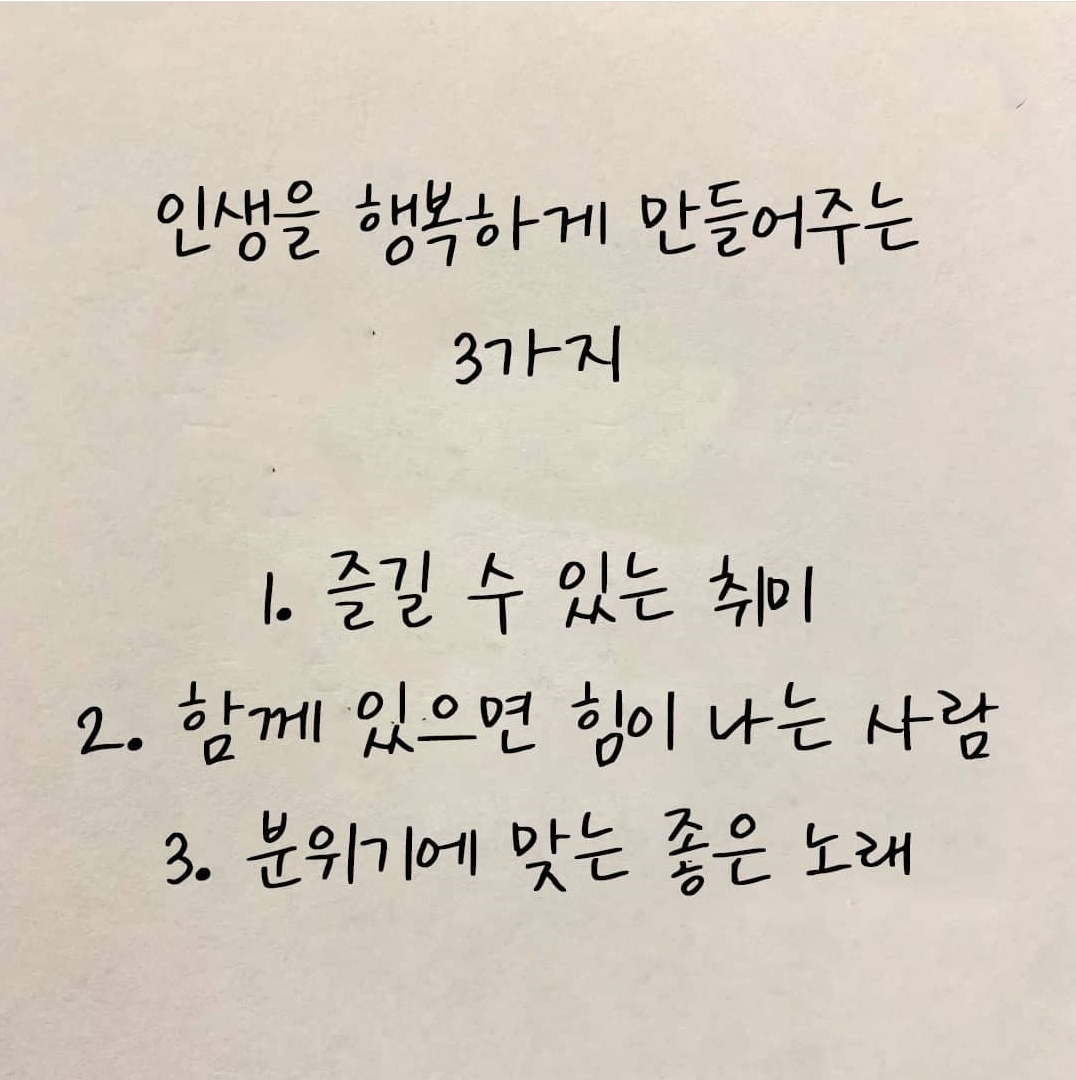 인생을 행복하게 만들어주는
3가지
1. 즐길 수 있는 취미
2. 함께 있으면 힘이 나는 사람
3. 분위기에 맞는 좋은 노래